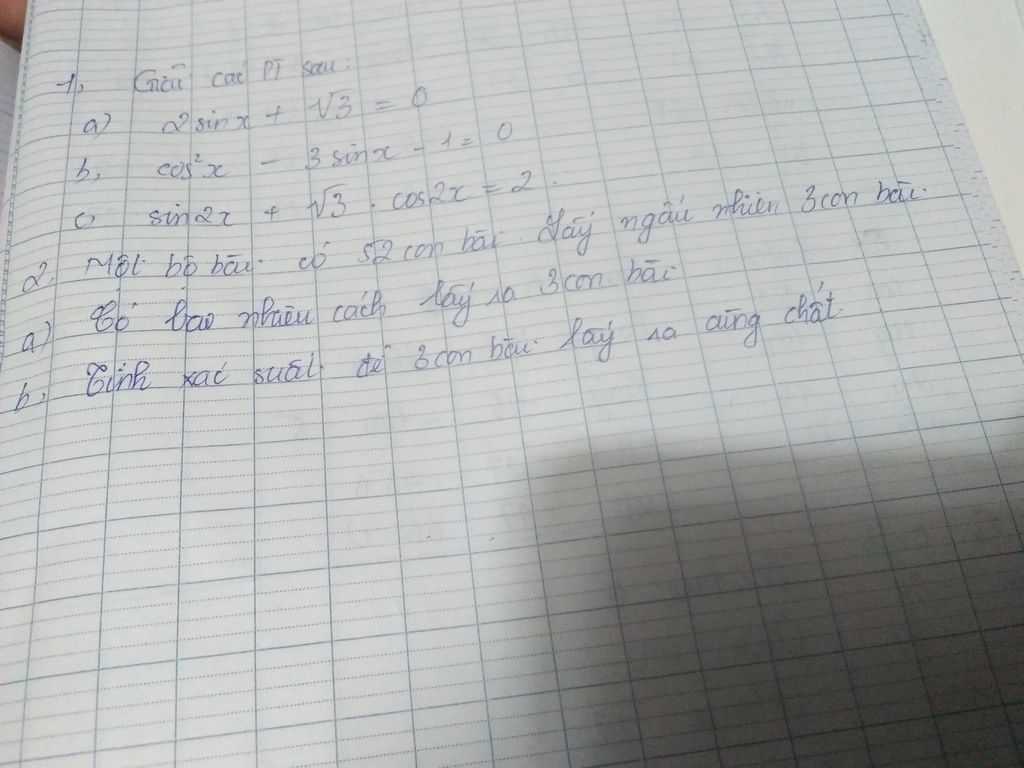 1, Giải các PT sau:
a) 2 sin x + √3 = 0
b, cos²x - 3 sin x - 1 = 0
c, sin 2x + √3 . cos 2x = 2.
2. Một bộ bài có 52 con bài. Lấy ngẫu nhiên 3 con bài.
a) Có bao nhiêu cách lấy ra 3 con bài
b, Tính xác suất để 3 con bài lấy ra cùng chất.